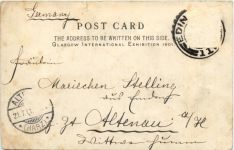 Germany
POST CARD
THE ADDRESS TO BE WRITTEN ON THIS SIDE.
GLASGOW INTERNATIONAL EXHIBITION 1901
EDIN
Fräulein
Mariechen Stelling
aus
ALT
Altenau a/H
(HARZ)
Wittwe